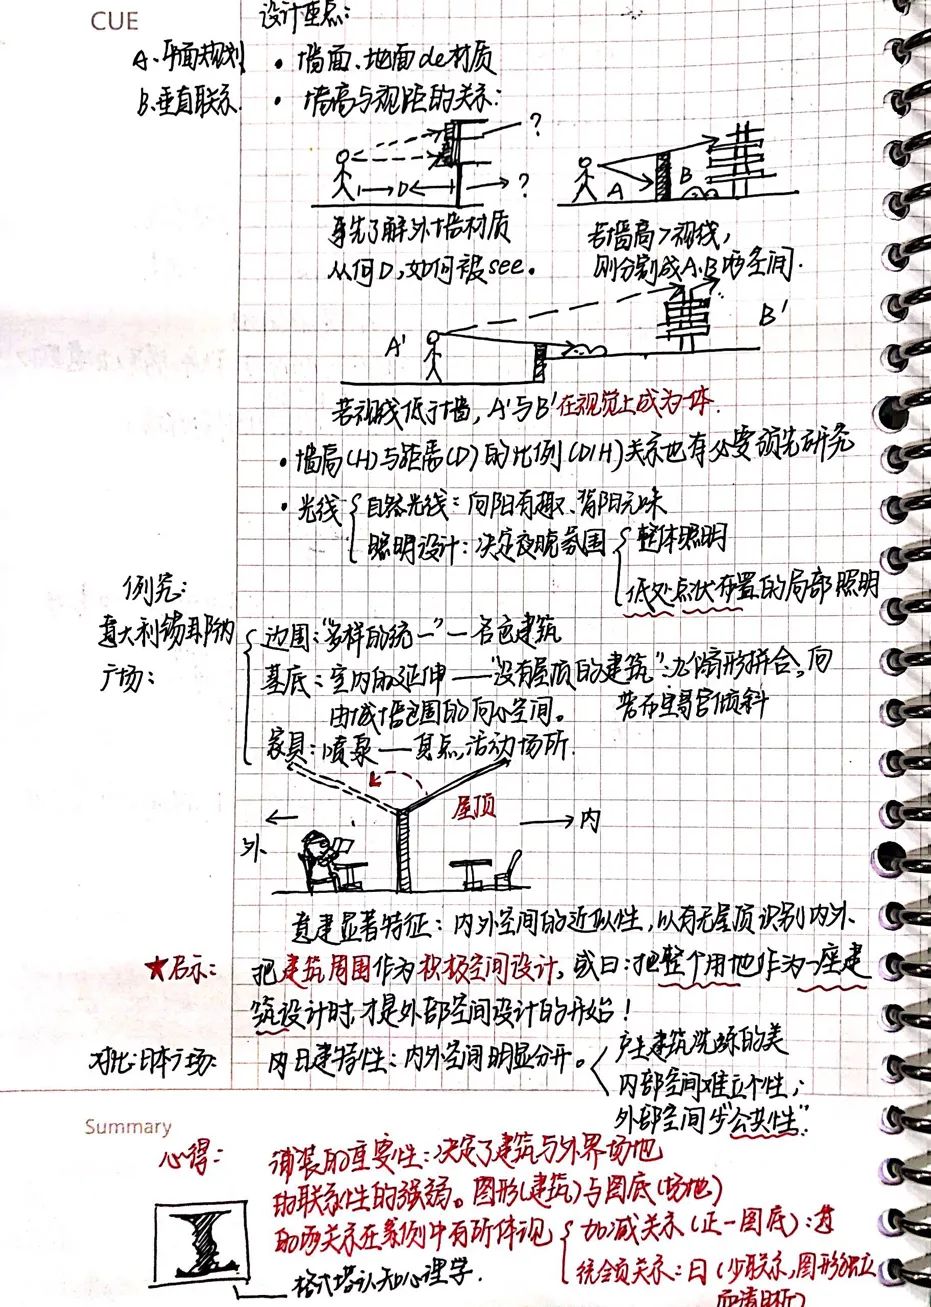 CUE
设计重点:
A.平面规划
• 墙面、地面de材质
B.垂直联系
• 墙高与视距的关系:
?
D
?
A
B
事先了解外墙材质
从何D,如何被see。
若墙高>视线,
则分割成A.B两空间.
A'
B'
若视线低于墙,A'与B'在视觉上成为一体.
• 墙高(H)与距离(D)的比例(D/H)关系也有必要预先研究
• 光线
自然光线:向阳有趣、背阳无味
照明设计:决定夜晚氛围
整体照明
低处点状布置的局部照明
例究:
意大利锡耶纳
广场:
边围:“多样的统一”—各色建筑
基底:室内的延伸——“没有屋顶的建筑”:九个扇形拼合,向
由城墙包围的向心空间。
若市里哥官倾斜
家具:喷泉——具点,活动场所.
屋顶
外
内
意建显著特征:内外空间的近似性,以有无屋顶识别内外.
★启示:
把建筑周围作为积极空间设计,或曰:把整个用地作为一座建
筑设计时,才是外部空间设计的开始!
对比:日本广场:
因日建特性:内外空间明显分开。
产生建筑洗练的美
内部空间难立个性;
外部空间少“公共性”.
Summary
心得:
铺装的重要性:决定了建筑与外界场地
的联系性的强弱。图形(建筑)与图底(场地)
的两关系在案例中有所体现
加减关系(正一图底):意
统领关系:日(少联系,图形独立
而清晰)
格式塔认知心理学.